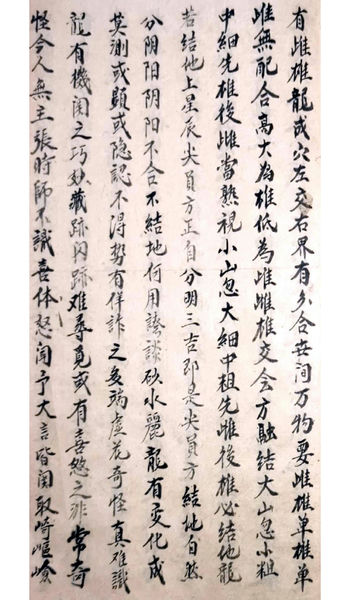 有雌雄龍或穴左交右界有多合世间万物要雌雄单雄单
雌無配合高大為雄低為雌雌雄交会方融结大山忽小粗
中细先雄後雌當熟視小山忽大细中粗先雌後雄必结地龍
若结地上星辰尖員方正自分明三吉即是尖員方结地自然
分阴阳阴阳不合不结地何用誇談砂水麗龍有变化成
莫測或顕或隐認不得势有佯詐之多端虚花奇怪真难識
龍有機関之巧妙藏跡闪跡难尋覓或有喜怒之非常奇
怪令人無主張時師不識喜体怒闻予大言皆闭取崎嶇險